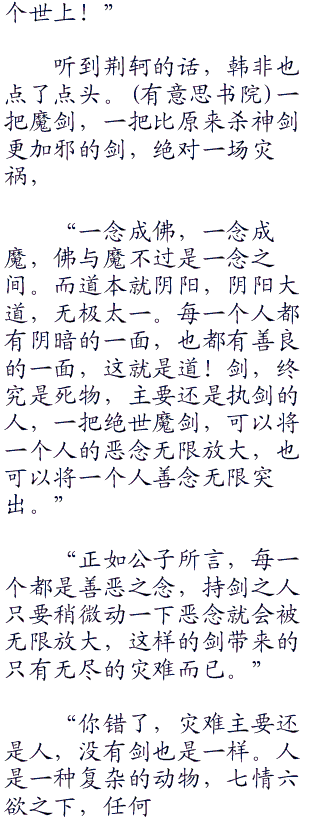 个世上！”
听到荆轲的话，韩非也
点了点头。(有意思书院)一
把魔剑，一把比原来杀神剑
更加邪的剑，绝对一场灾
祸，
“一念成佛，一念成
魔，佛与魔不过是一念之
间。而道本就阴阳，阴阳大
道，无极太一。每一个人都
有阴暗的一面，也都有善良
的一面，这就是道！剑，终
究是死物，主要还是执剑的
人，一把绝世魔剑，可以将
一个人的恶念无限放大，也
可以将一个人善念无限突
出。”
“正如公子所言，每一
个都是善恶之念，持剑之人
只要稍微动一下恶念就会被
无限放大，这样的剑带来的
只有无尽的灾难而已。”
“你错了，灾难主要还
是人，没有剑也是一样。人
是一种复杂的动物，七情六
欲之下，任何